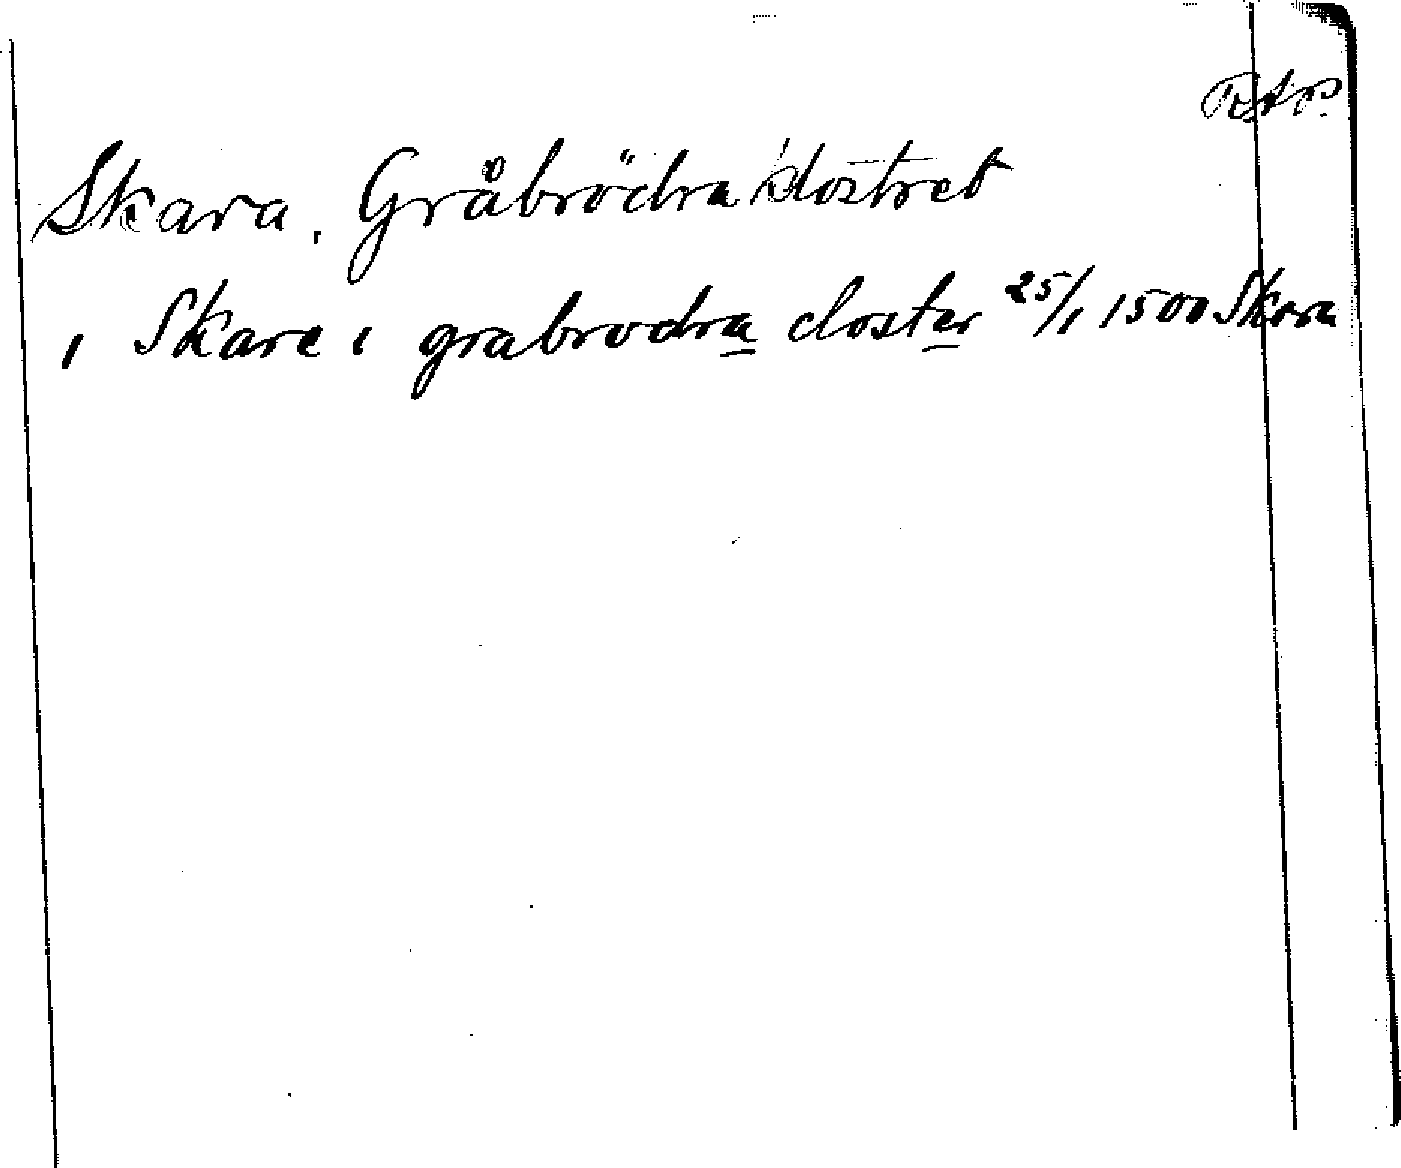 RAP.
Skara, Gråbrödraklostret
i Skare i grabrodra closter 25/1 1500 Skara